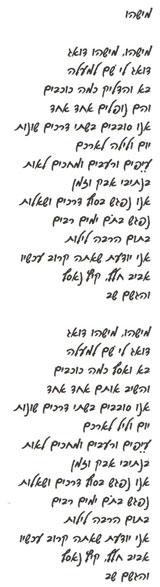 מישהו
מישהו, מישהו דואג
דואג לי שם למעלה
בא והדליק כמה כוכבים
והם נופלים אחד אחד
אנו סובבים בשתי דרכים שונות
יום ולילה לארכם
עייפים ורעבים ומחכים לאות
בנתיבי אבק וזמן
אנו נפגש בסוף דרכים ושאלות
נפגש בתום ימים רבים
בתום הרבה לילות
אני יודעת שאתה קרוב עכשיו
אביב חלף, קיץ נאסף
והגשם שב
מישהו, מישהו דואג
דואג לי שם למעלה
בא ואסף כמה כוכבים
והשיב אותם אחד אחד
אנו סובבים בשתי דרכים שונות
יום וליל לארכם
עייפים ורעבים ומחכים לאות
בנתיבי אבק וזמן
אנו נפגש בסוף דרכים ושאלות
נפגש בתום ימים רבים
בתום הרבה לילות
אני יודעת שאתה קרוב עכשיו
אביב חלף, קיץ נאסף
והגשם שב